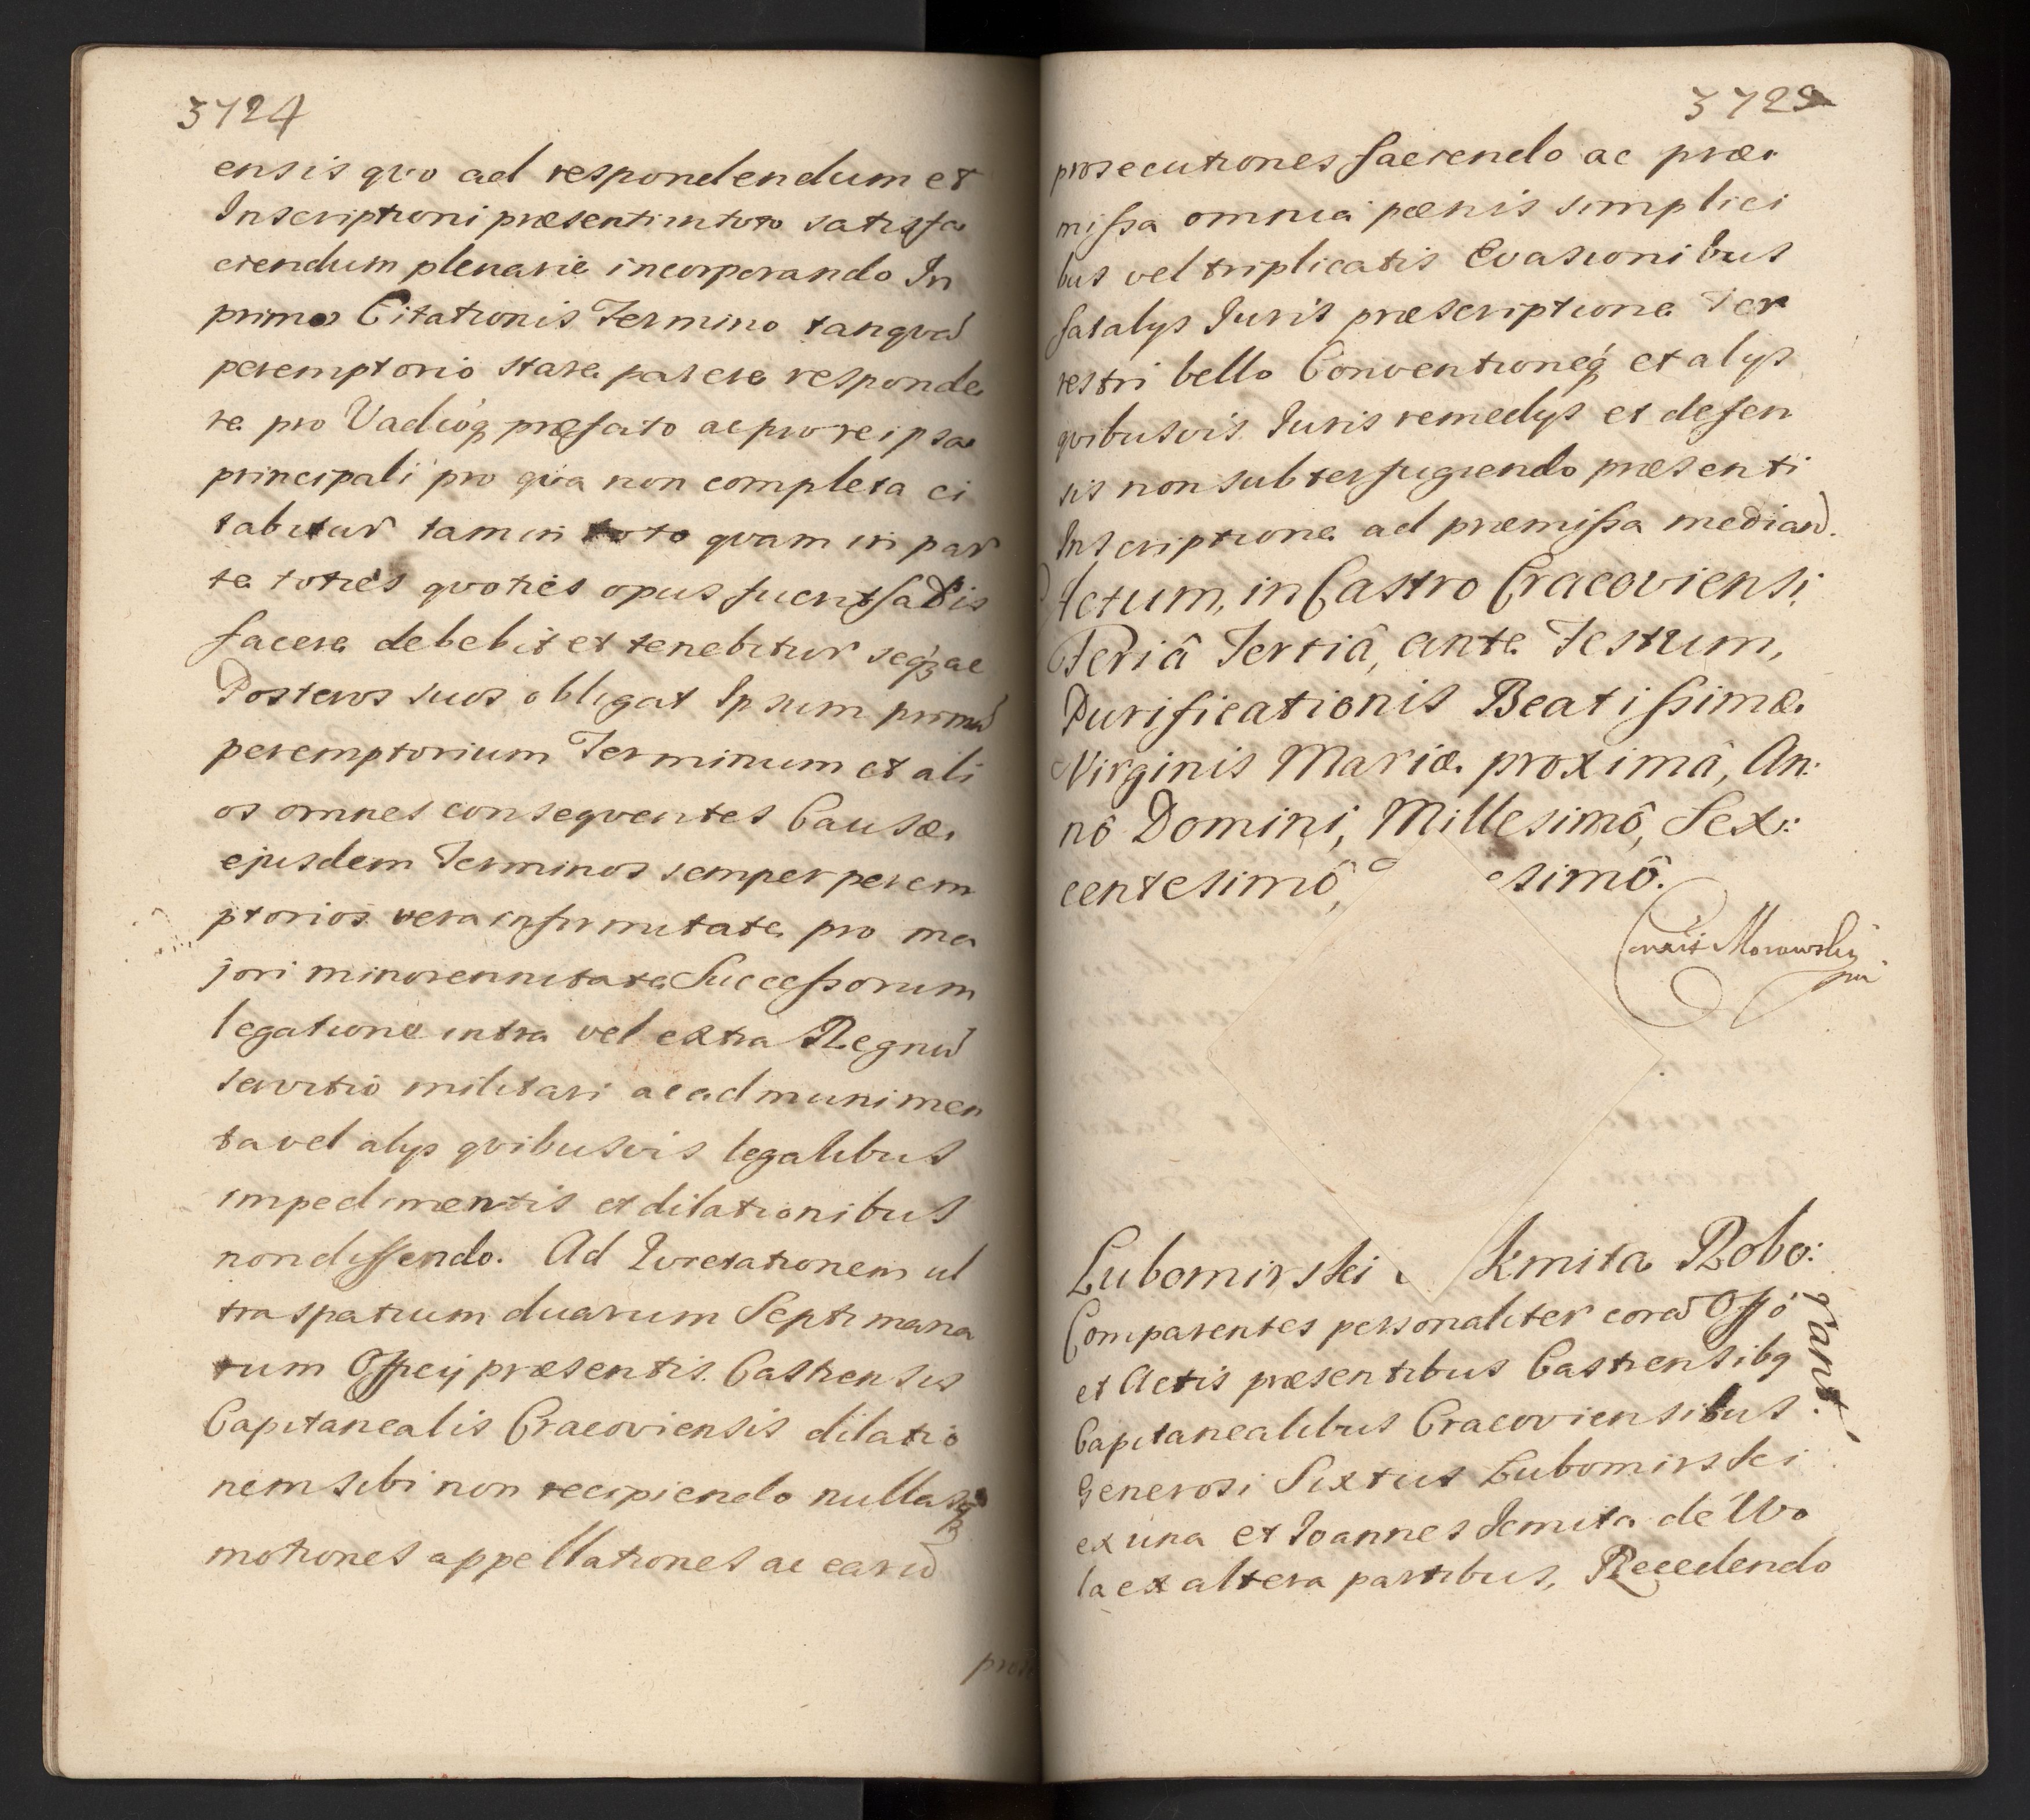 3724
ensis quo ad respondendum et
Inscriptioni præsenti in toto satisfa
ciendum plenarie incorporando In
primo Citationis Termino tanquā
peremptorio stare parere responde
re pro Vadioq præfato ac pro re ipsa
principali pro qua non completa ci
tabitur tam in toto quam in par
te toties quoties opus fuerit satis
facere debebit et tenebitur seq ac
Posteros suos obligat Ipsum primū
peremptorium Terminum et ali
os omnes consequentes Causæ
ejusdem Terminos semper perem
ptorios vera infirmitate pro ma
jori minorennitate Successorum
legatione intra vel extra Regnū
servitio militari ac ad munimen
ta vel alys quibusvis legalibus
impedimentis et dilationibus
non differendo. Ad Iuretationem ul
tra spatium duarum Septimana
rum Officij præsentis Castrensis
Capitanealis Cracoviensis dilatio
nem sibi non recipiendo nullasq
motiones appellationes ac earū
3725
prosecutiones faciendo ac præ
missa omnia pœnis simplici
bus vel triplicatis Evasionibus
fatalys Iuris præscriptione Ter
restri bello Conventioneq et alys
quibusvis Iuris remedys et defen
sis non subterfugiendo præsenti
Inscriptione ad præmissa mediañ.
Actum, in Castro Cracoviensi,
Feriâ Tertiâ, ante Festum,
Purificationis Beatissimæ
Virginis Mariæ proximâ, An:
nô Domini, Millesimô, Sex:
centesimô, esimô.
Morawskii
Lubomirski Kmita Robo:
rant.
Comparentes personaliter corā Offô
et Actis præsentibus Castrensibq
Capitanealibus Cracoviensibus
Generosi Sixtus Lubomirski
ex una et Ioannes Kmita de Wo
la ex altera partibus, Recedendo